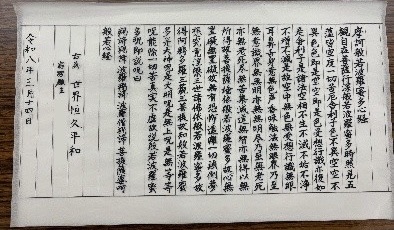 摩訶般若波羅蜜多心経
観自在菩薩行深般若波羅蜜多時照見五
蘊皆空度一切苦厄舎利子色不異空空不
異色色即是空空即是色受想行識亦復如
是舎利子是諸法空相不生不滅不垢不浄
不増不減是故空中無色無受想行識無眼
耳鼻舌身意無色声香味触法無眼界乃至
無意識界無無明亦無無明尽乃至無老死
亦無老死尽無苦集滅道無智亦無得以無
所得故菩提薩埵依般若波羅蜜多故心無
罣礙無罣礙故無有恐怖遠離一切顛倒夢
想究竟涅槃三世諸仏依般若波羅蜜多故
得阿耨多羅三藐三菩提故知般若波羅蜜
多是大神呪是大明呪是無上呪是無等等
呪能除一切苦真実不虚故説般若波羅蜜
多呪即説呪曰
羯諦羯諦波羅羯諦波羅僧羯諦菩提薩婆訶
般若心経
世界恒久平和
願主
令和八年三月十四日